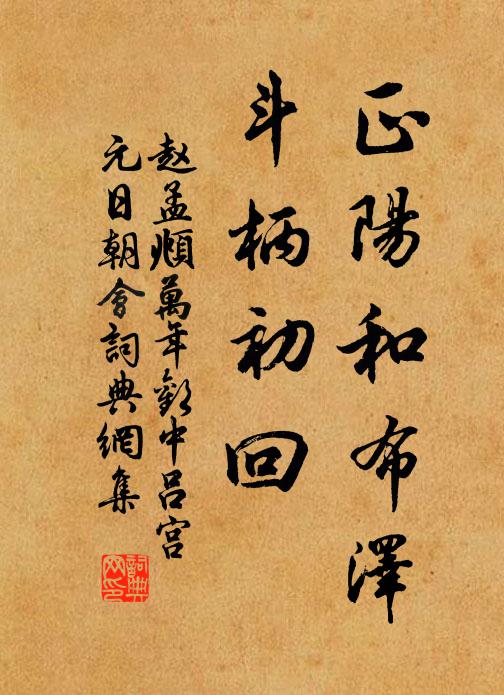 正陽和布澤
斗柄初回
赵孟頫萬年歡中吕宫
元日朝會詞典網集
詞典网印